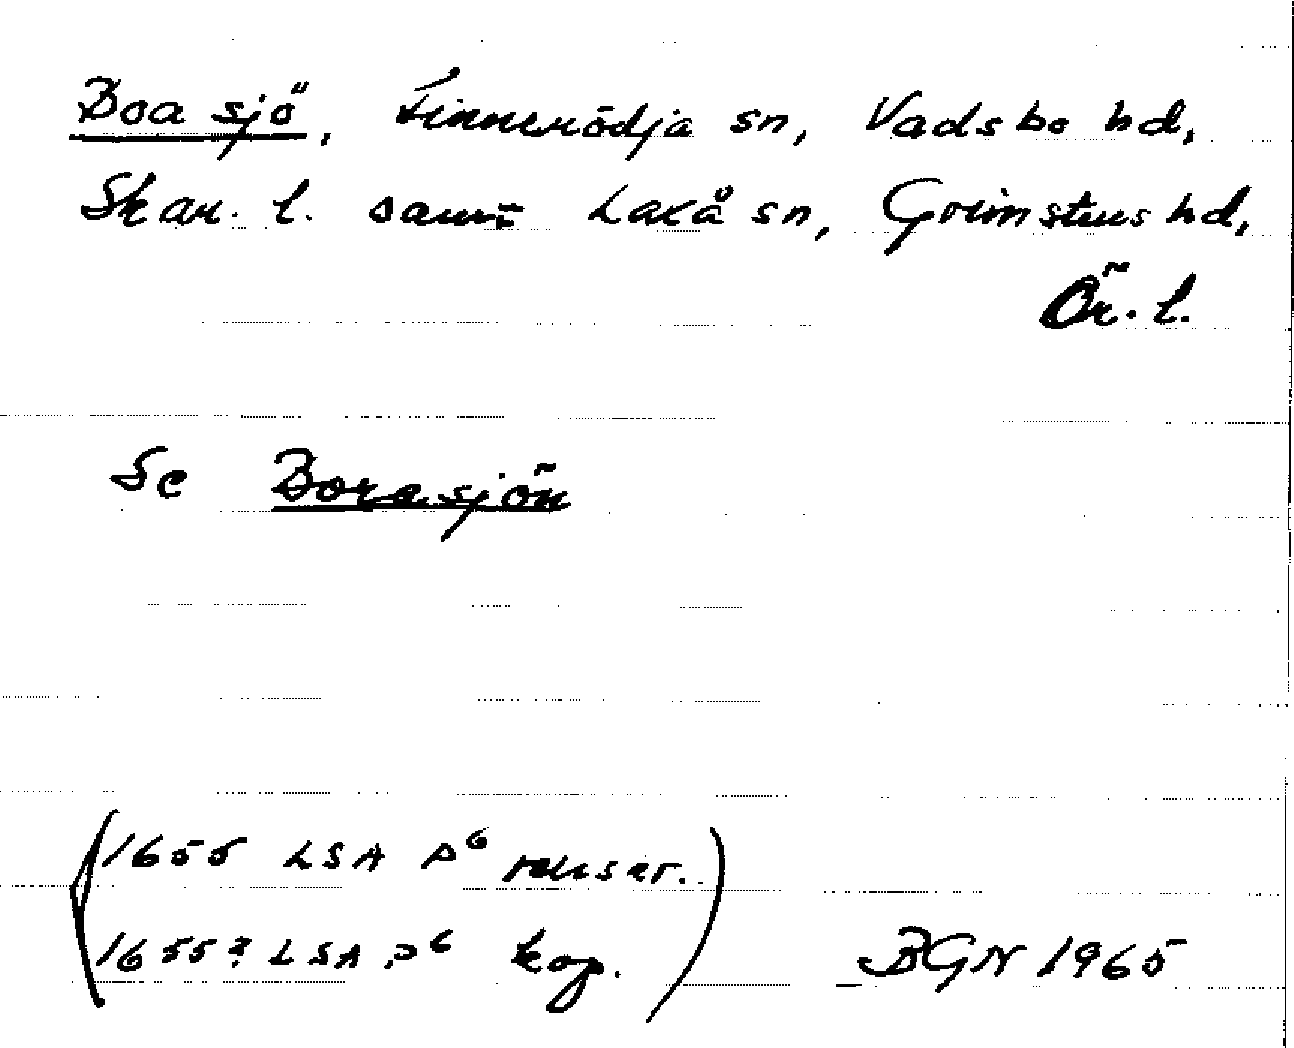 Boa sjö, Finnerödja sn, Vadsbo hd,
Skar. l. samt Laxå sn, Grimstens hd,
Ör. l.
Se Borasjön
(1655 LSA P6 renser.)
(1655? LSA P6 kop.) BGN 1965